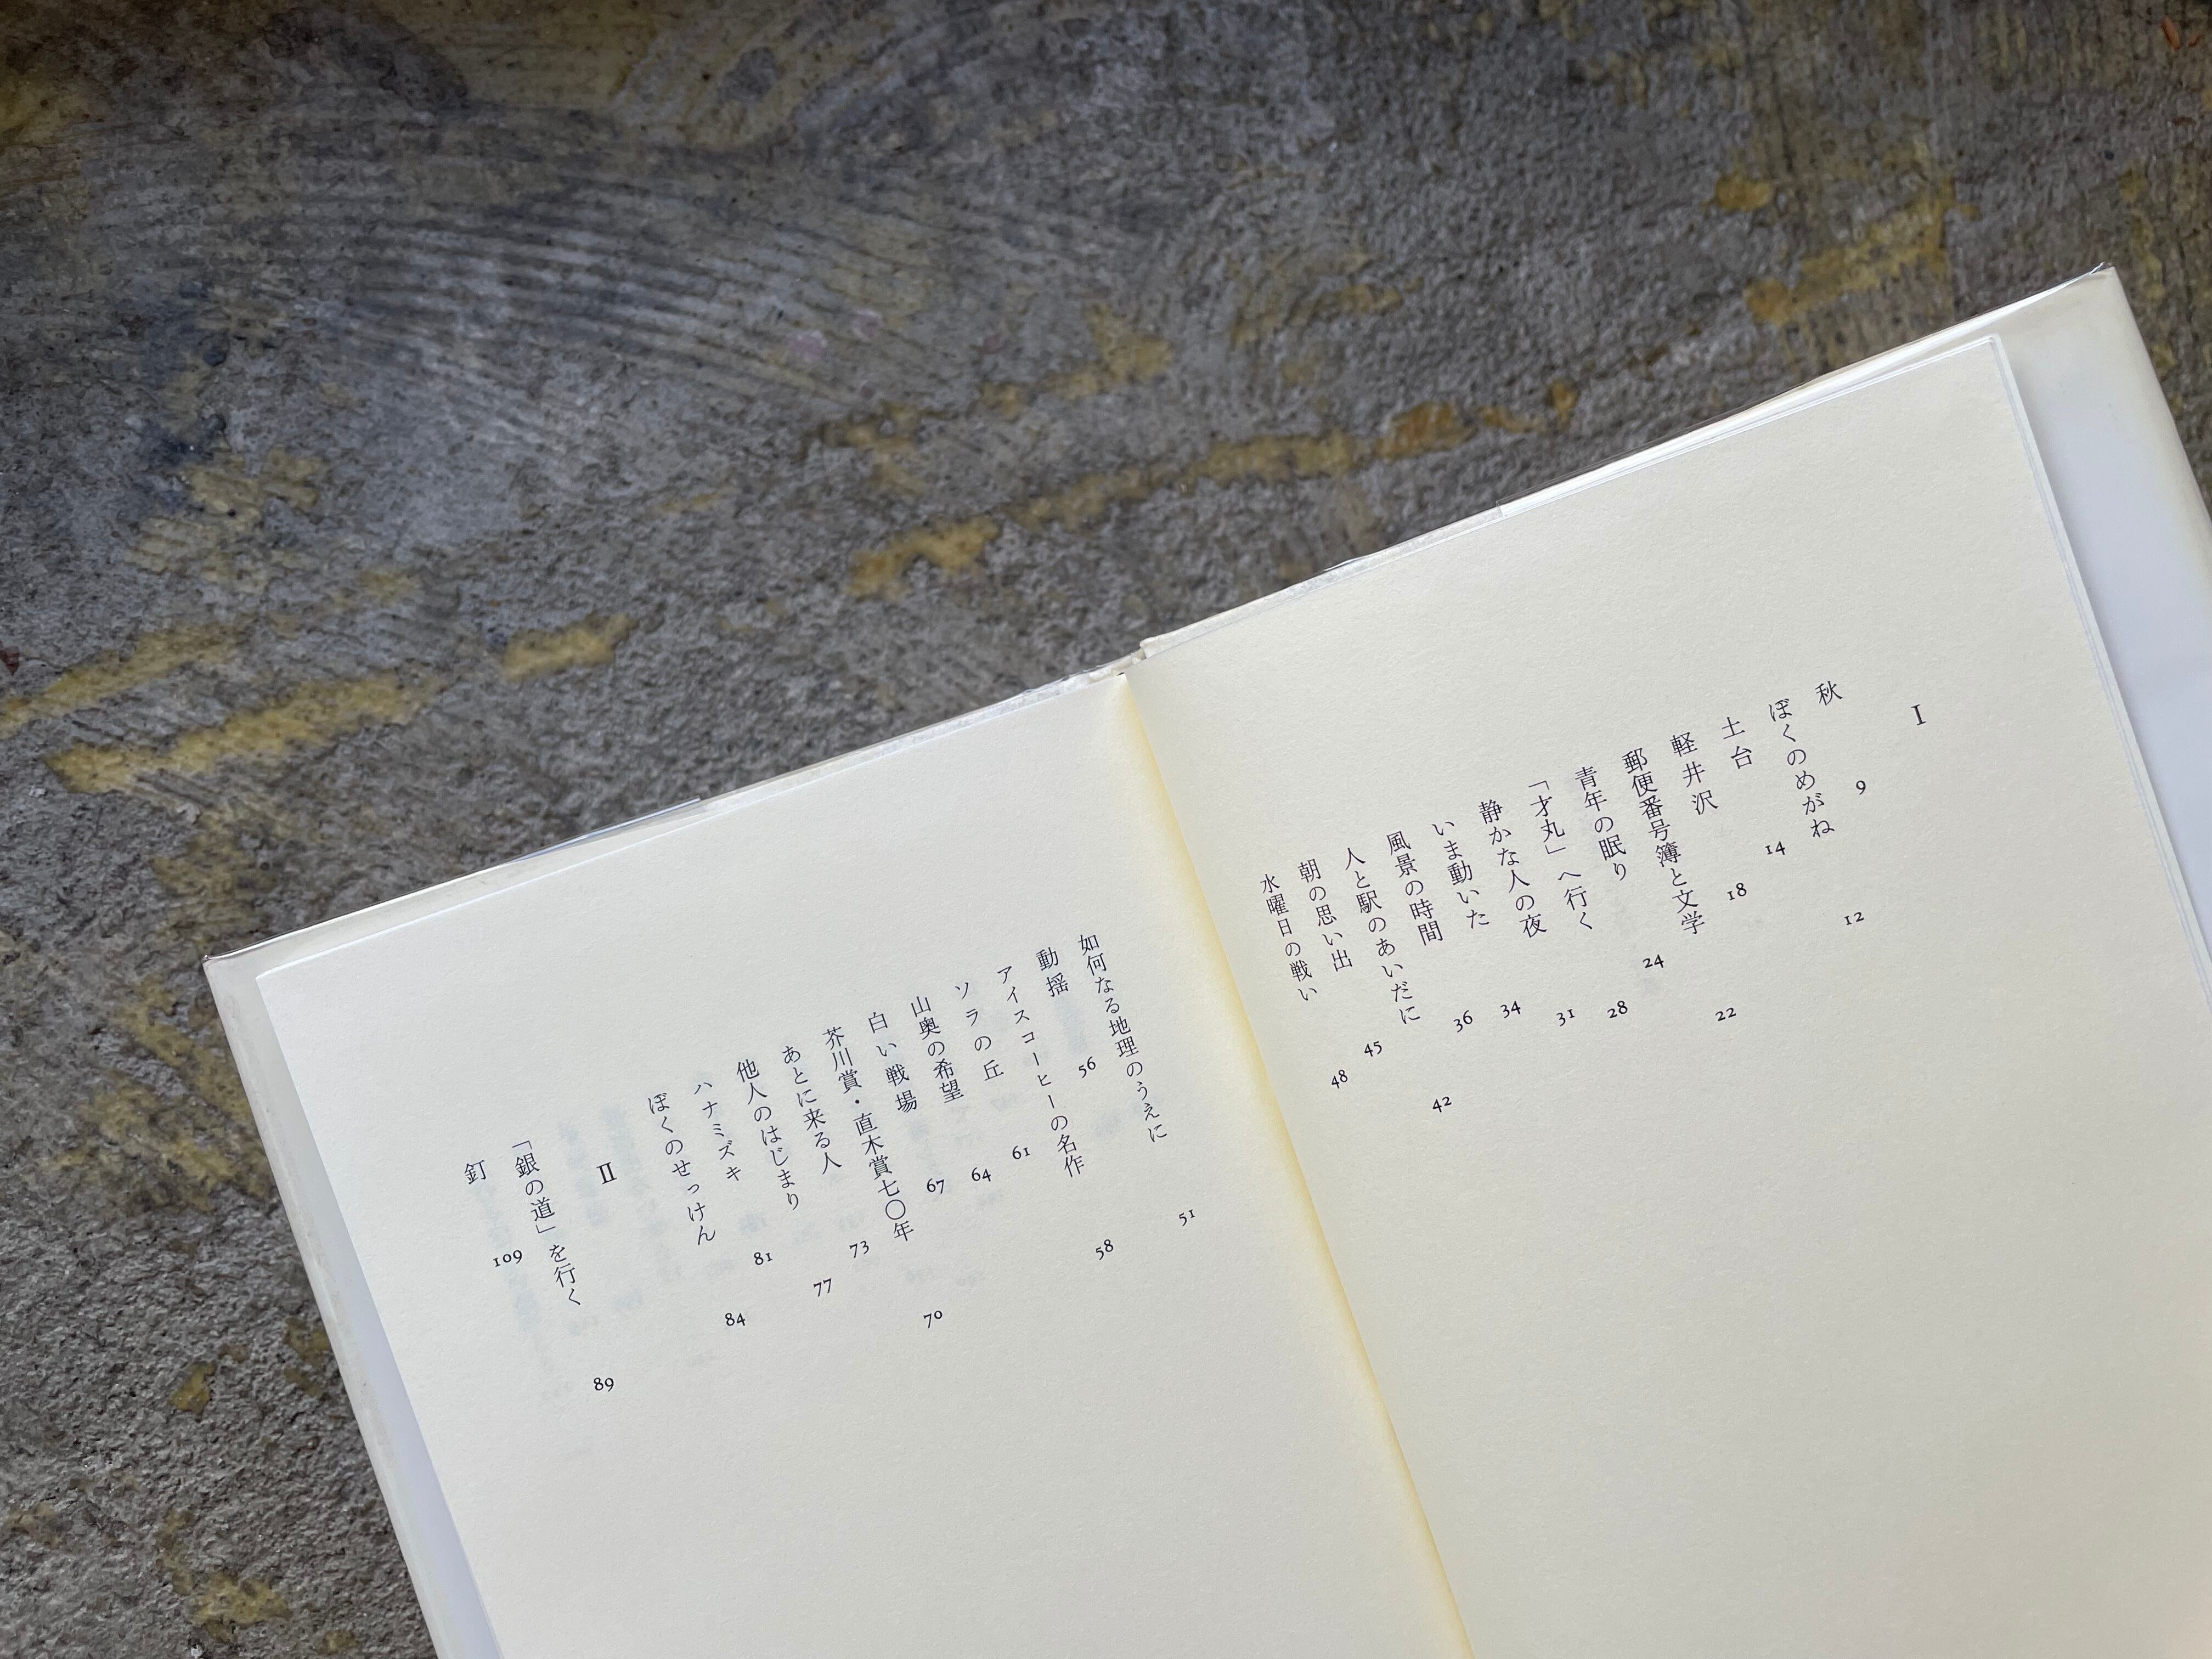 I
秋 9
ぼくのめがね 12
土台 14
軽井沢 18
郵便番号簿と文学 22
青年の眠り 24
「才丸」へ行く 28
静かな人の夜 31
いま動いた 34
風景の時間 36
人と駅のあいだに 42
朝の思い出 45
水曜日の戦い 48
如何なる地理のうえに 51
動揺 56
アイスコーヒーの名作 58
ソラの丘 61
山奥の希望 64
白い戦場 67
芥川賞・直木賞七〇年 70
あとに来る人 73
他人のはじまり 77
ハナミズキ 81
ぼくのせっけん 84
II
「銀の道」を行く 89
釘 109